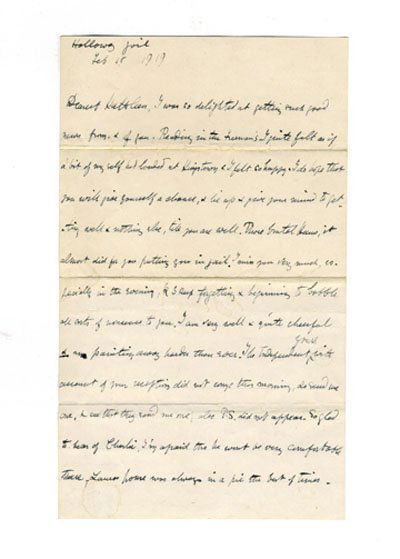 Holloway jail
Feb 15 1919
Dearest Kathleen, I was so delighted at getting such good
news from & of you. Reading in the I quite felt as if
a bit of myself had landed at Kingstown & I felt so happy. I do hope that
you will give yourself a chance, & lie up & give your mind to get-
ting well & nothing else, till you are well. Those brutal it
almost did for you putting you in jail. I miss you very much, es-
pecially in the evening. & I keep forgetting & beginning to bobble
all sorts of nonsense to you. I am very well & quite cheerful
& am painting away harder than ever. The Independent
gave
account of your reception did not come this morning, do send me
one, & see that they send me one; also did not appear. So glad
to hear of Charlie, I'm afraid tho he wont be very comfortable
there, house was always in a pie the best of times.